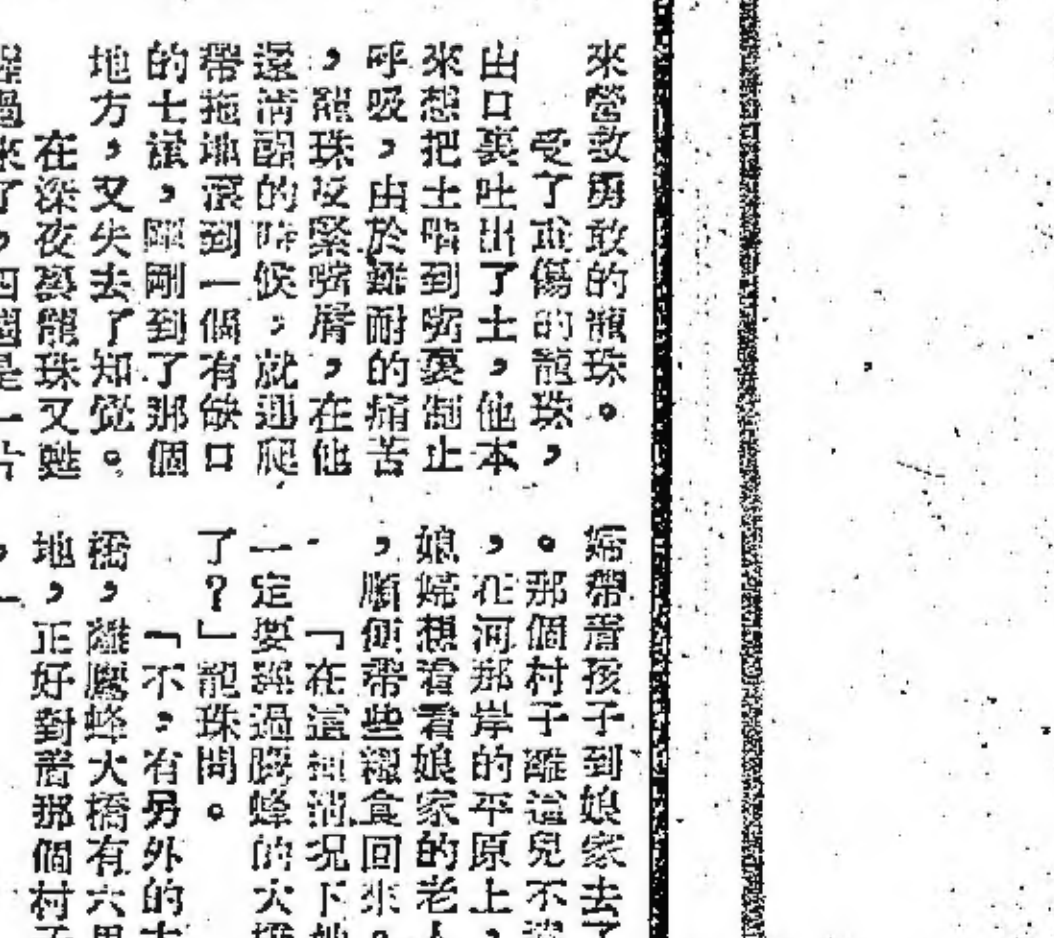 來營救勇敢的龍珠。
受了重傷的龍珠，
由口裏吐出了土，他本
來想把土啃到嘴裏制止
呼吸，由於難耐的痛苦
，龍珠反緊嘴唇，在他
還清醒的時候，就連爬
帶拖地滾到一個有缺口
的土，剛剛到了那個
地方，又失去了知覺。
在深夜裏龍珠又甦
醒過來了，四週是一片
婦帶着孩子到娘家去了
。那個村子離這兒不
，在河那岸的平原上，
娘婦想看看娘家的老人
，順便帶些糧食回來。
「在這種情況下她
一定要經過鷹蜂的大橋
了？」龍珠問。
「不，有另外的大
橋，離鷹蜂大橋有六里
地，正好對着那個村子
，一